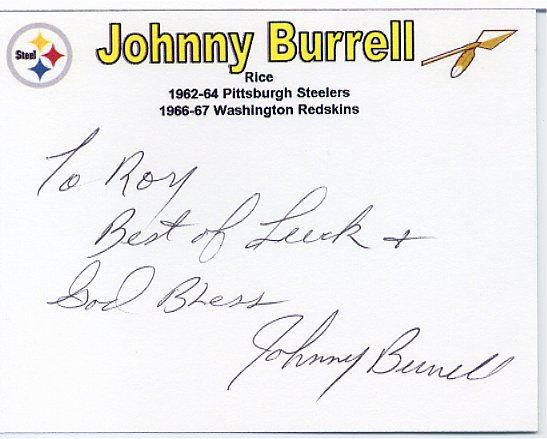 Steel
Johnny Burrell
Rice
1962-64 Pittsburgh Steelers
1966-67 Washington Redskins
To Roy
Best of Luck +
God Bless
Johnny Burrell